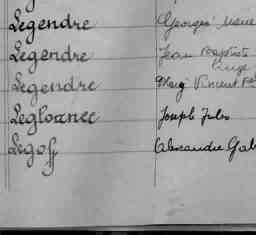 Legendre Georges Marie
Legendre Jean Baptiste
Legendre Marig Vincent
Legloanec Joseph Jules
Legoff Alexandre Gab